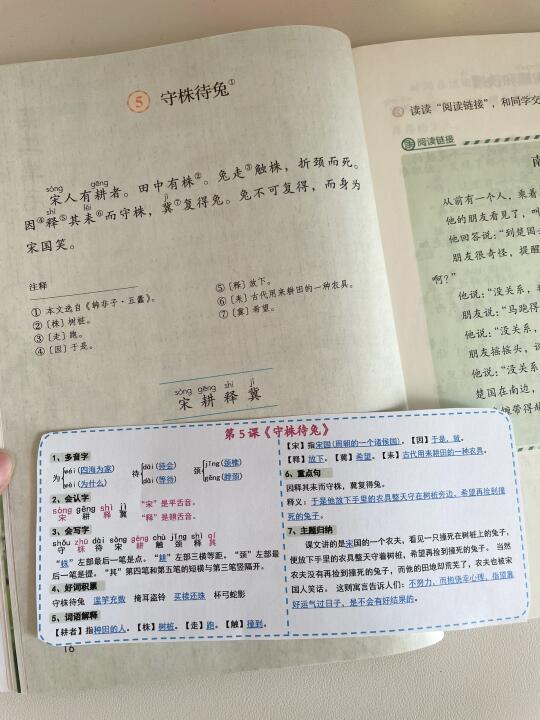 5 守株待兔①
sòng gēng
宋人有耕者。田中有株②。兔走③触株，折颈而死。
shì lěi jì
因④释⑤其耒⑥而守株，冀⑦复得兔。兔不可复得，而身为
宋国笑。
注释
① 本文选自《韩非子·五蠹》。
②〔株〕树桩。
③〔走〕跑。
④〔因〕于是。
⑤〔释〕放下。
⑥〔耒〕古代用来耕田的一种农具。
⑦〔冀〕希望。
sòng gēng shì jì
宋 耕 释 冀
读读“阅读链接”，和同学交
阅读链接
南
从前有一个人，乘着
他的朋友看见了，叫
他回答说：“到楚国去
朋友很奇怪，提醒
啊？”
他说：“没关系，我
朋友说：“马跑得
他说：“没关系，
朋友摇摇头，说
他说：“没关系
楚国在南边，
第5课《守株待兔》
1、多音字
为 wéi(四海为家) wèi(为什么) 待 dāi(待会) dài(等待) 颈 jǐng(颈椎) gěng(脖颈)
2、会认字
sòng gēng shì jì
宋 耕 释 冀 “宋”是平舌音。
“释”是翘舌音。
3、会写字
shǒu zhū dài sòng gēng chù jǐng shì qí
守 株 待 宋 耕 触 颈 释 其
“株”左部最后一笔是点。“耕”左部三横等距。“颈”左部最
后一笔是提。“其”第四笔和第五笔的短横与第三笔竖隔开。
4、好词积累
守株待兔 滥竽充数 掩耳盗铃 买椟还珠 杯弓蛇影
5、词语解释
【耕者】指种田的人。【株】树桩。【走】跑。【触】撞到。
【宋】指宋国(周朝的一个诸侯国)。【因】于是，就。
【释】放下。【冀】希望。【耒】古代用来耕田的一种农具。
6、重点句
因释其耒而守株，冀复得兔。
释义：于是他放下手里的农具整天守在树桩旁边，希望再捡到撞
死的兔子。
7、主题归纳
课文讲的是宋国的一个农夫，看见一只撞死在树桩上的兔子，
便放下手里的农具整天守着树桩，希望再捡到撞死的兔子。当然
农夫没有再捡到撞死的兔子，而他的田地却荒芜了，农夫也被宋
国人笑话。这则寓言告诉人们：不努力，而抱侥幸心理，指望靠
好运气过日子，是不会有好结果的。
16